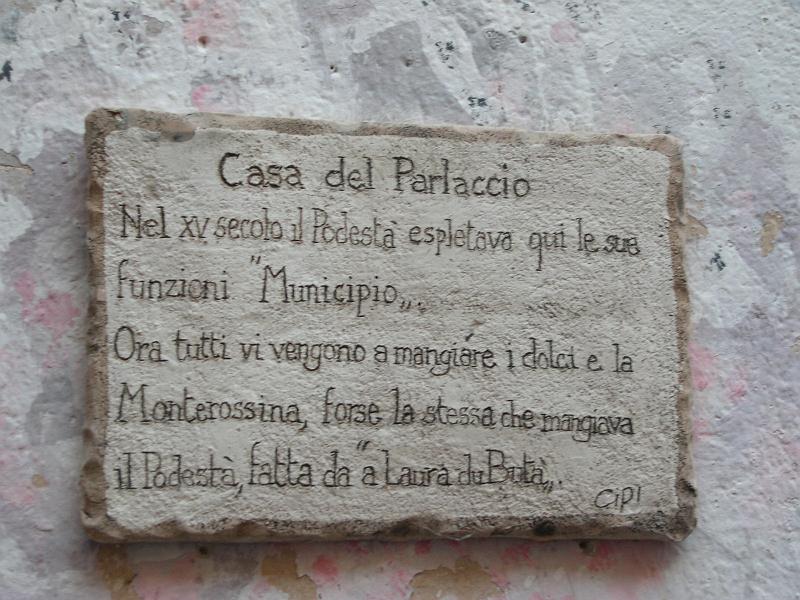 Casa del Parlaccio
Nel XV secolo il Podestà espletava qui le sue
funzioni "Municipio„.
Ora tutti vi vengono a mangiare i dolci e la
Monterossina, forse la stessa che mangiava
il Podestà, fatta da "a Laura du Butà„.
CiPI